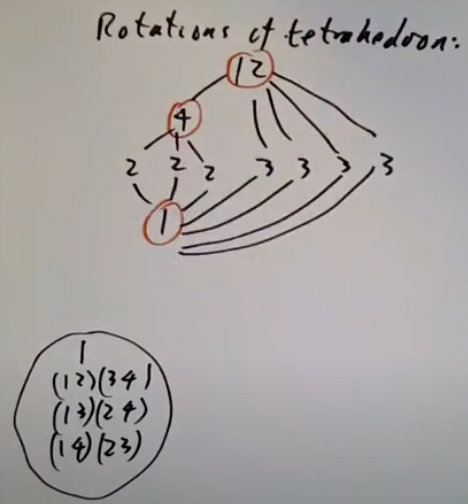 Rotations of tetrahedron:
12
4
2 2 2 3 3 3 3
1
1
(12)(34)
(13)(24)
(14)(23)